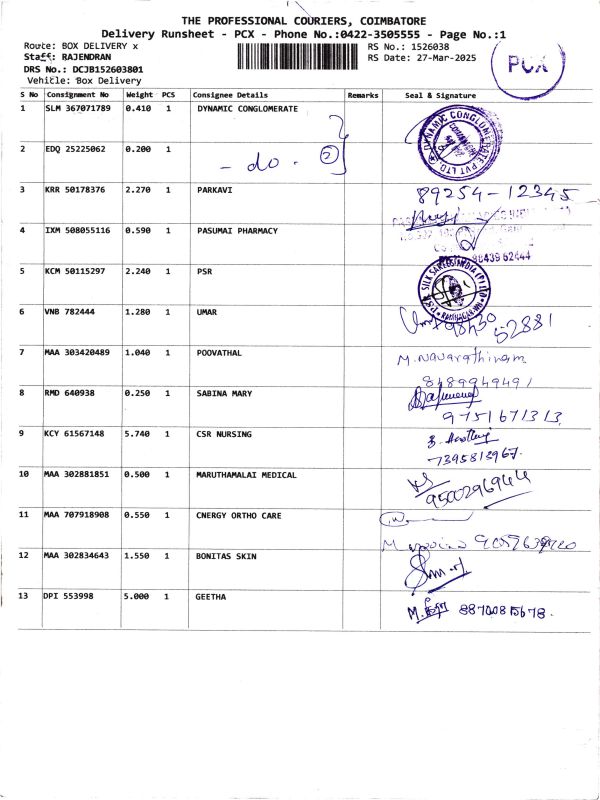 THE PROFESSIONAL COURIERS, COIMBATORE
Delivery Runsheet - PCX - Phone No.:0422-3505555 - Page No.:1
Route: BOX DELIVERY x
RS No.: 1526038
Staff: RAJENDRAN
RS Date: 27-Mar-2025
DRS No.: DCJB152603801
Vehicle: Box Delivery
PCX
S No Consignment No Weight PCS Consignee Details Remarks Seal & Signature
1 SLM 367071789 0.410 1 DYNAMIC CONGLOMERATE
DYNAMIC CONGLOMERATE PVT LTD
2 EDQ 25225062 0.200 1 - do - 2
3 KRR 50178376 2.270 1 PARKAVI 89254-12345
4 IXM 508055116 0.590 1 PASUMAI PHARMACY
98439 62444
5 KCM 50115297 2.240 1 PSR
PSR SILK SAREES INDIA (P) LTD
6 VNB 782444 1.280 1 UMAR
52881
7 MAA 303420489 1.040 1 POOVATHAL M. Navarathinam
8489949491
8 RMD 640938 0.250 1 SABINA MARY
9751671313
9 KCY 61567148 5.740 1 CSR NURSING
7395813967
10 MAA 302881851 0.500 1 MARUTHAMALAI MEDICAL
9500296944
11 MAA 707918908 0.550 1 CNERGY ORTHO CARE
12 MAA 302834643 1.550 1 BONITAS SKIN
13 DPI 553998 5.000 1 GEETHA